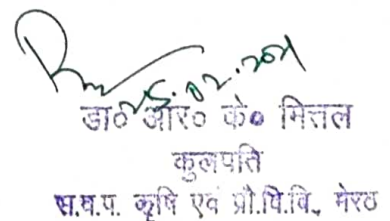 25.02.2021
डा० आर० के० मित्तल
कुलपति
स.व.प. कृषि एवं प्रौ.वि.वि., मेरठ